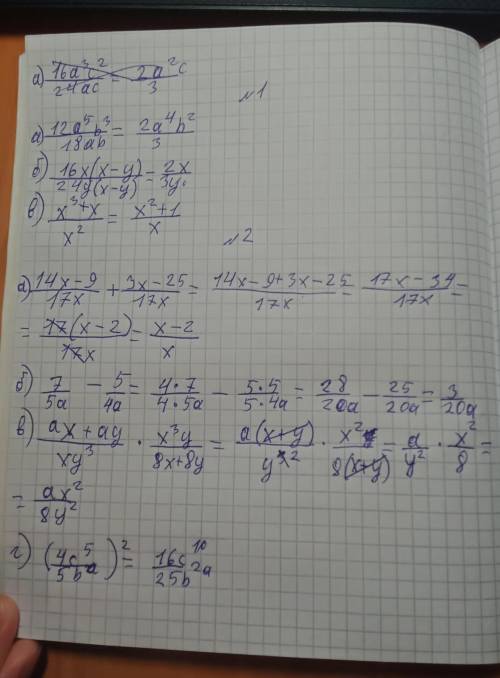 а) 16a³c²/24ac = 2a²c/3
№1
а) 12a⁵b³/18ab = 2a⁴b²/3
б) 16x(x-y)/24y(x-y) = 2x/3y.
в) x³+x/x² = x²+1/x
№2
а) 14x-9/17x + 3x-25/17x = 14x-9+3x-25/17x = 17x-34/17x =
= 17(x-2)/17x = x-2/x
б) 7/5a - 5/4a = 4·7/4·5a - 5·5/5·4a = 28/20a - 25/20a = 3/20a
в) ax+ay/xy³ · x³y/8x+8y = a(x+y)/y² · x²/8(x+y) = a/y² · x²/8 =
= ax²/8y²
г) (4c⁵/5bᵃ)² = 16c¹⁰/25b²ᵃ